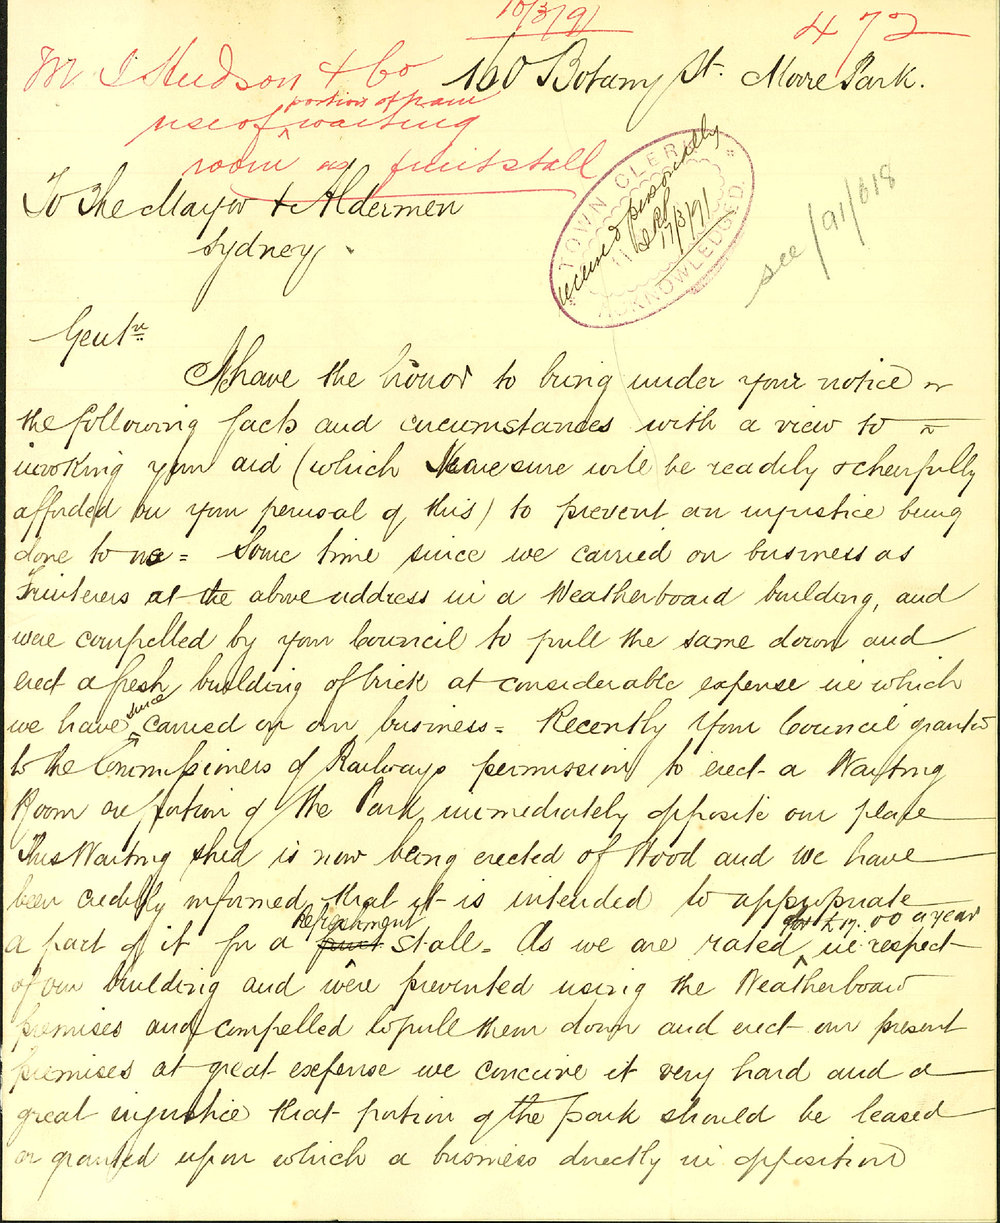 10/3/91
472
Mr I Hudson & Co
160 Botany St. Moore Park.
portion of tram
use of waiting
room as fruitstall
To The Mayor & Aldermen
Sydney.
TOWN CLERK
received personally
17/3/91
ACKNOWLEDGED
see/91/618
Gentn
I have the honor to bring under your notice
the following facts and circumstances with a view to
invoking your aid (which I am sure will be readily & cheerfully
afforded on your perusal of this) to prevent an injustice being
done to us = Some time since we carried on business as
Fruiterers at the above address in a Weatherboard building, and
were compelled by your Council to pull the same down and
erect a fresh building of brick at considerable expense in which
we have since carried on our business = Recently your Council granted
to the Commissioners of Railways permission to erect a Waiting
Room on portion of the Park immediately opposite our place
This Waiting shed is now being erected of Wood and we have
been credibly informed that it is intended to appropriate
a part of it for a fruit Refreshment Stall = As we are rated for £17.00 a year in respect
of our building and were prevented using the Weatherboard
premises and compelled to pull them down and erect our present
premises at great expense we conceive it very hard and a
great injustice that portion of the park should be leased
or granted upon which a business directly in opposition